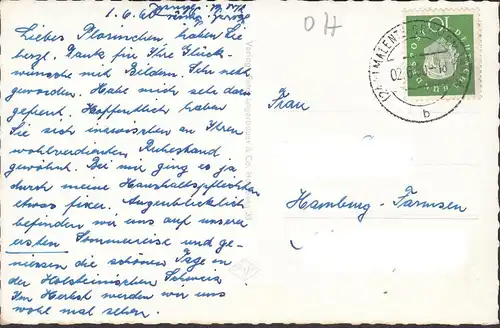 1.6.60
Liebes Plasinchen, haben Sie
herzl. Dank für Ihre Glück-
wünsche mit Bildern. Sehr nett
geworden. Habe mich sehr dar
gefreut. Hoffentlich haben
Sie sich inzwischen an Ihren
wohlverdienten Ruhestand
gewöhnt. Bei mir ging es ja
durch meine Haushaltspflichten
etwas fixer. Augenblicklich
befinden wir uns auf unserer
ersten Sommerreise und ge-
niessen die schönen Tage in
der Holsteinischen Schweiz
Im Herbst werden wir uns
wohl mal sehen.
OH
Frau
Hamburg-Farmsen
(24) MALENTE
b
10
DEUTSCHE
BUNDESPOST